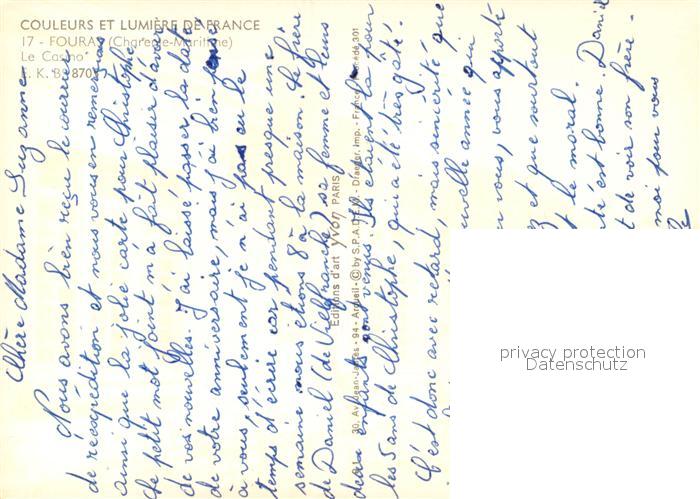 COULEURS ET LUMIÈRE DE FRANCE
17 - FOURAS (Charente-Maritime)
Le Casino
E. K. B. 87077
Chère Madame Suzanne
Nous avons bien reçu le courrier
de réexpédition et nous vous en remercions
ainsi que la jolie carte pour Christophe
Le petit mot joint m'a fait plaisir d'avoir
de vos nouvelles. J'ai laissé passer la date
de votre anniversaire, mais j'ai bien pensé
à vous, seulement je n'ai pas eu le
temps d'écrire car pendant presque une
semaine nous étions 8 à la maison. Le frère
de Daniel (de Villefranche) sa femme et leurs
deux enfants sont venus. Ils étaient là pour
les 5 ans de Christophe, qui a été très gâté.
C'est donc avec retard, mais sincérité que
nouvelle année qui
vous, vous apporte
et que surtout
le moral. Daniel
est bonne.
de voir son frère.
moi pour vous
Editions d'art yvon PARIS
30, Av. Jean-Jaurès - 94 - Arcueil - © by S.P.A.D.E.M. - Draeger, Imp. - France 301
privacy protection
Datenschutz